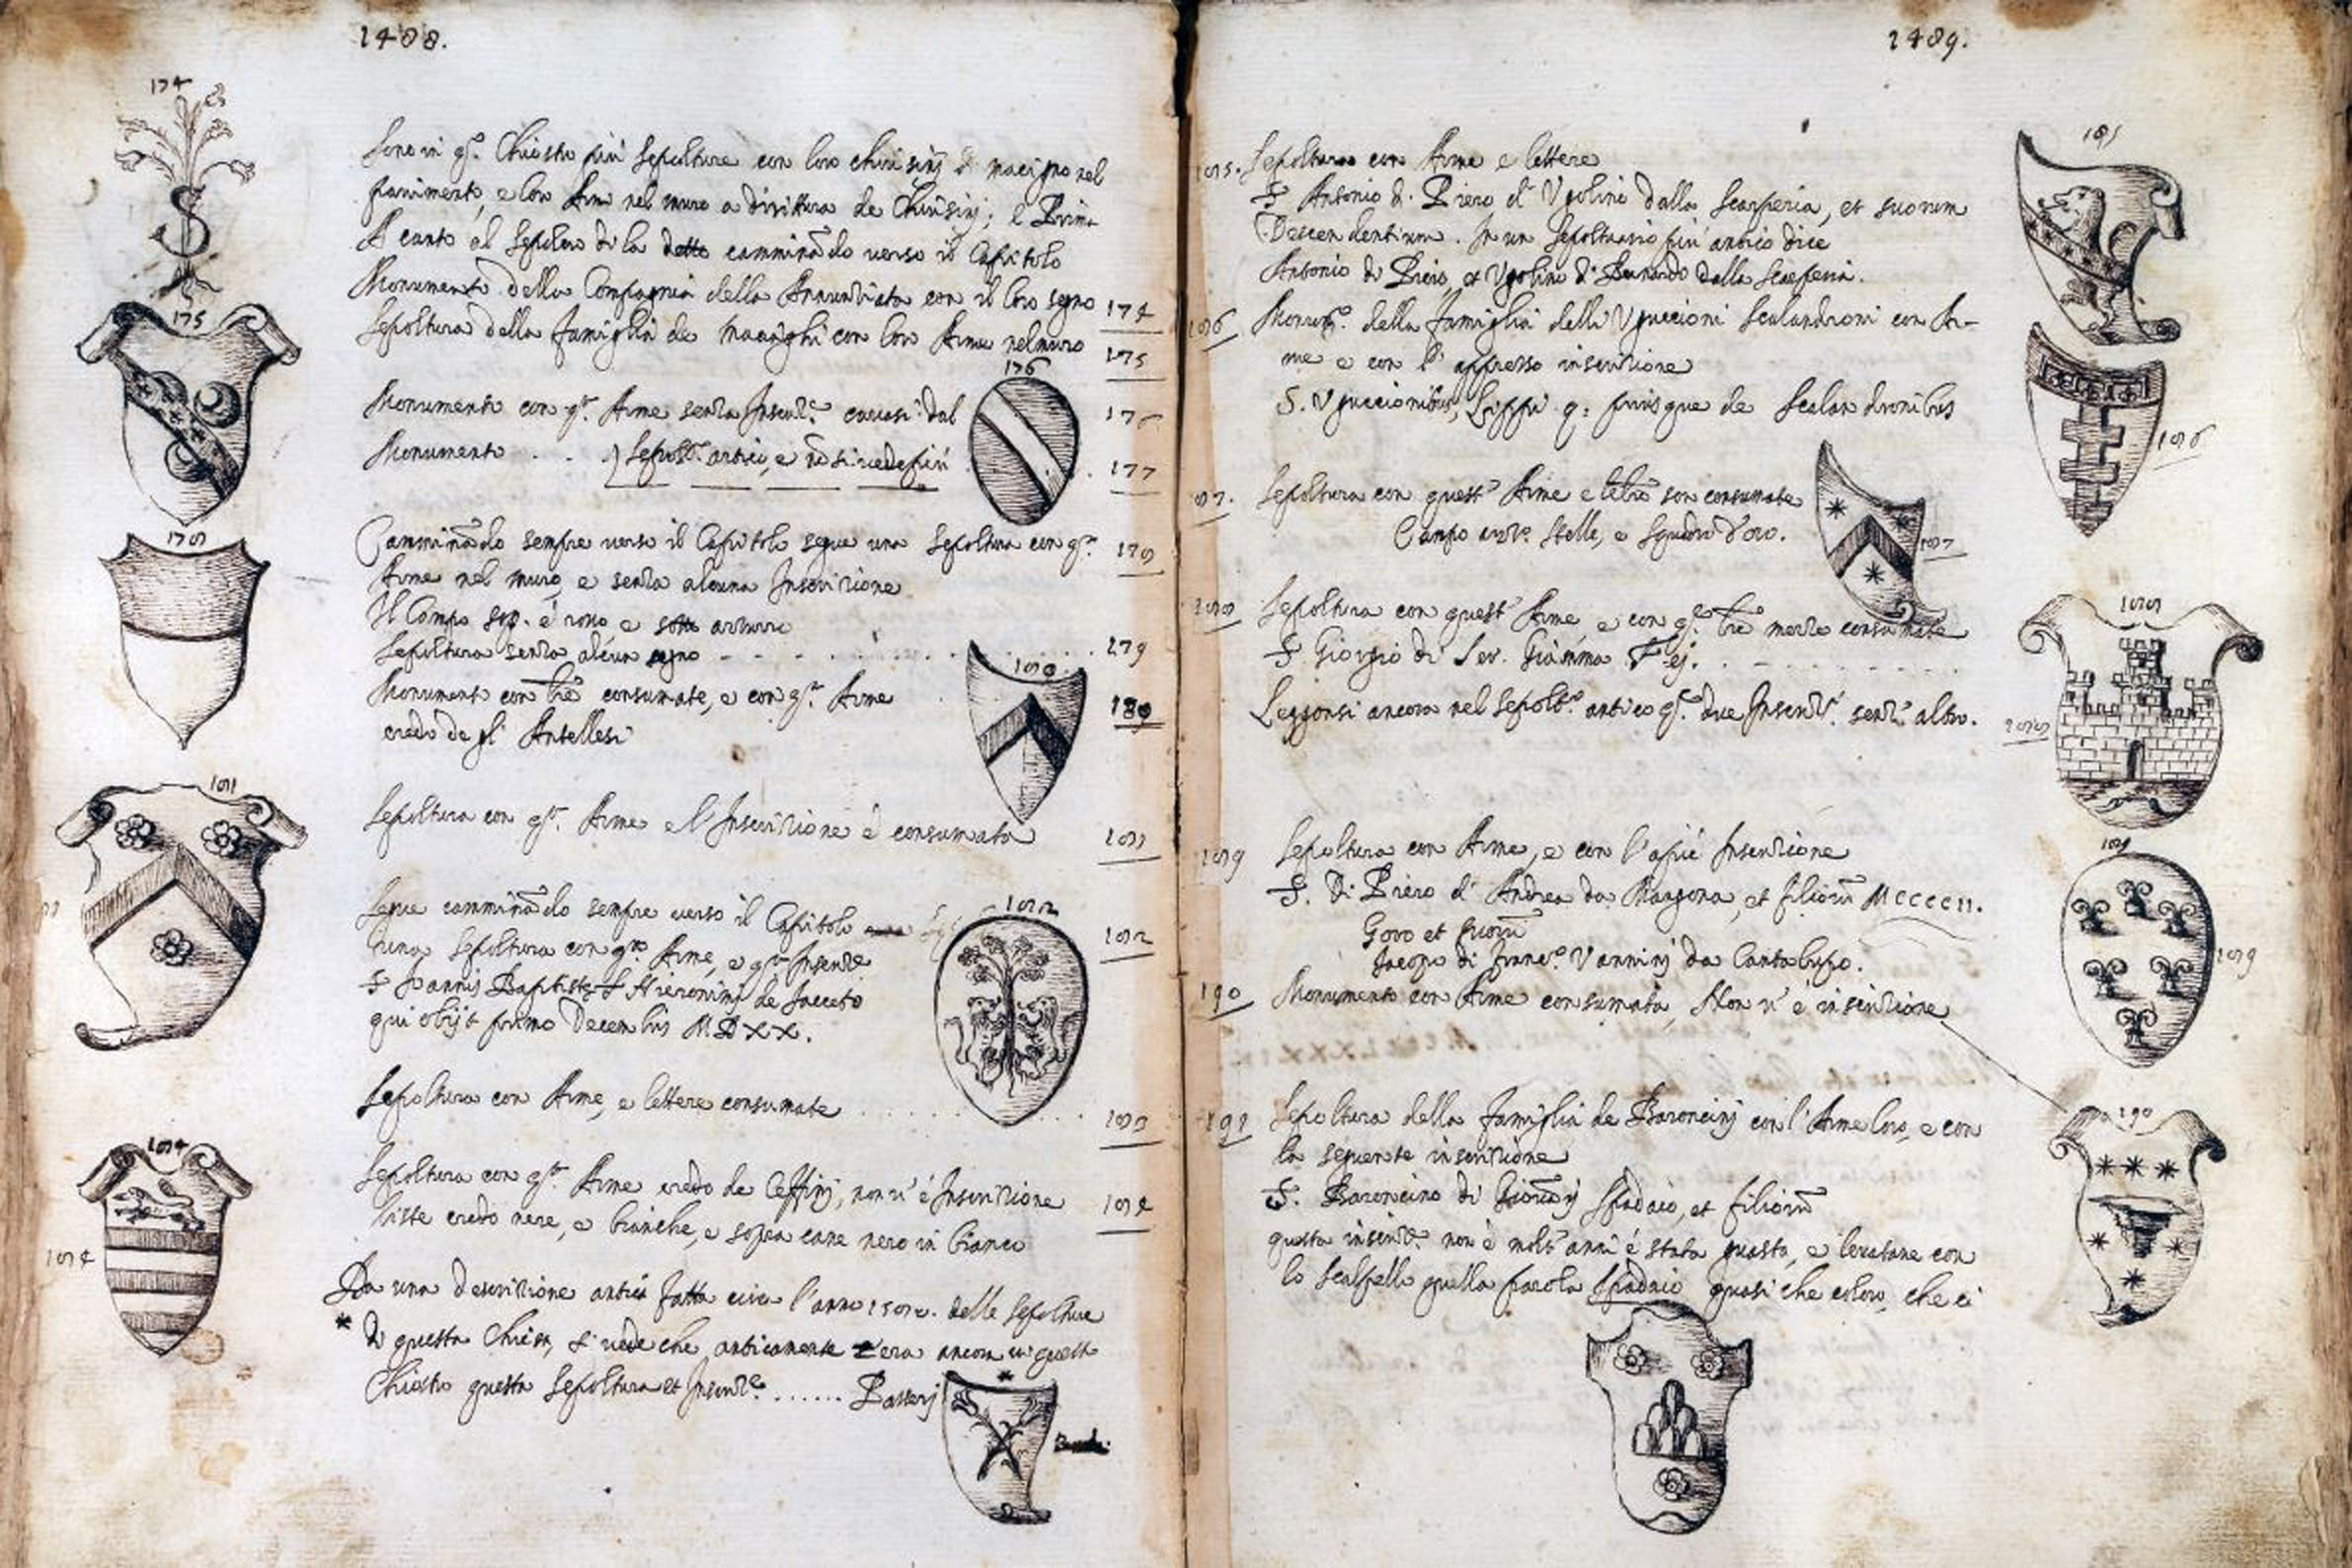 1488.
174
Sono in q.º Chiostro più sepolture con loro chiusini di macigno nel
pavimento, e loro Armi nel muro a dirittura de Chiusini; e Prima
A canto al sepolcro di la detto camminãdo verso il Capitolo
Monumento della Compagnia della Annuntiata con il loro segno 174
Sepoltura della famiglia de con loro Arme nel muro 175
175
176
Monumento con q.ta Arme senza Inscrit.e cavasi dal 176
Monumento . . . Sepolt. antico, e nõ si vede più . . 177
178
Camminãdo sempre verso il Capitolo segue una Sepoltura con q.ta 178
Arme nel muro, e senza alcuna Inscritione
Il Campo sop. è rosso e sotto azzurro
Sepoltura senza alcun segno - - - . . . . 179
180
Monumento con lr̃e consumate, e con q.ta Arme 180
credo de gl' Antellesi
181
Sepoltura con q.ta Arme e l'Inscritione è consumata 181
182
Segue camminãdo sempre verso il Capitolo 182
una Sepoltura con q.ta Arme, e q.ta Inscrit.e
S. Joannis Baptiste S. Hieronimi de Jacceto
qui obijt primo Decembris M.D.XX.
Sepoltura con Arme, e lettere consumate . . . . . . 183
184
Sepoltura con q.ta Arme credo de Ceffini, non v'è Inscritione 184
liste credo nere, e bianche, e sopra cane nero in bianco
184
Da una descritione antica fatta circa l'anno delle sepolture
* Di questa Chiesa, si vede che anticamente c'era ancora in questo
Chiostro questa sepoltura et Inscrit.e . . . . . .
*
1489.
185
185. Sepoltura con Arme e lettere
S. Antonio di Piero d' Ugolino dalla Scarperia, et suorum
Descendentium. In un sepoltuario più antico dice
Antonio di Piero, et Ugolino di Bernardo dalla Scarperia.
186 Monum.º della famiglia delli Uguccioni Scalandroni con Ar-
me e con l' appresso inscritione
S. Uguccionibus, Lippi q: suisque de Scalandronibus
186
187. Sepoltura con quest' Arme e lr̃e son consumate
Campo azr.º Stelle, e Squadra d'oro.
187
188
188 Sepoltura con quest' Arme, e con q.e lr̃e mezze consumate
S. Giorgio di Ser. . - . . . . .
188
Leggonsi ancora nel sepolt.º antico q.e due Inscrit.i senz' altro.
189
189 Sepoltura con Arme, e con l'ap.ie Inscritione
S. Di Piero d' Andrea da Mangona, et filiorũ MCCCCII.
Goro et suorũ
Jacopo di Franc.º Vannini da Cantalupo.
189
190 Monumento con Arme consumata, Non v' è inscritione
190
191 Sepoltura della famiglia de Baroncini con l'Arme loro, e con
la seguente inscritione
S. Baroncino di Giovãni Spadaio, et filiorũ
questa inscrit.e non è molt' anni è stata guasta, e levatane con
lo scalpello quella parola Spadaio quasi che coloro, che ci